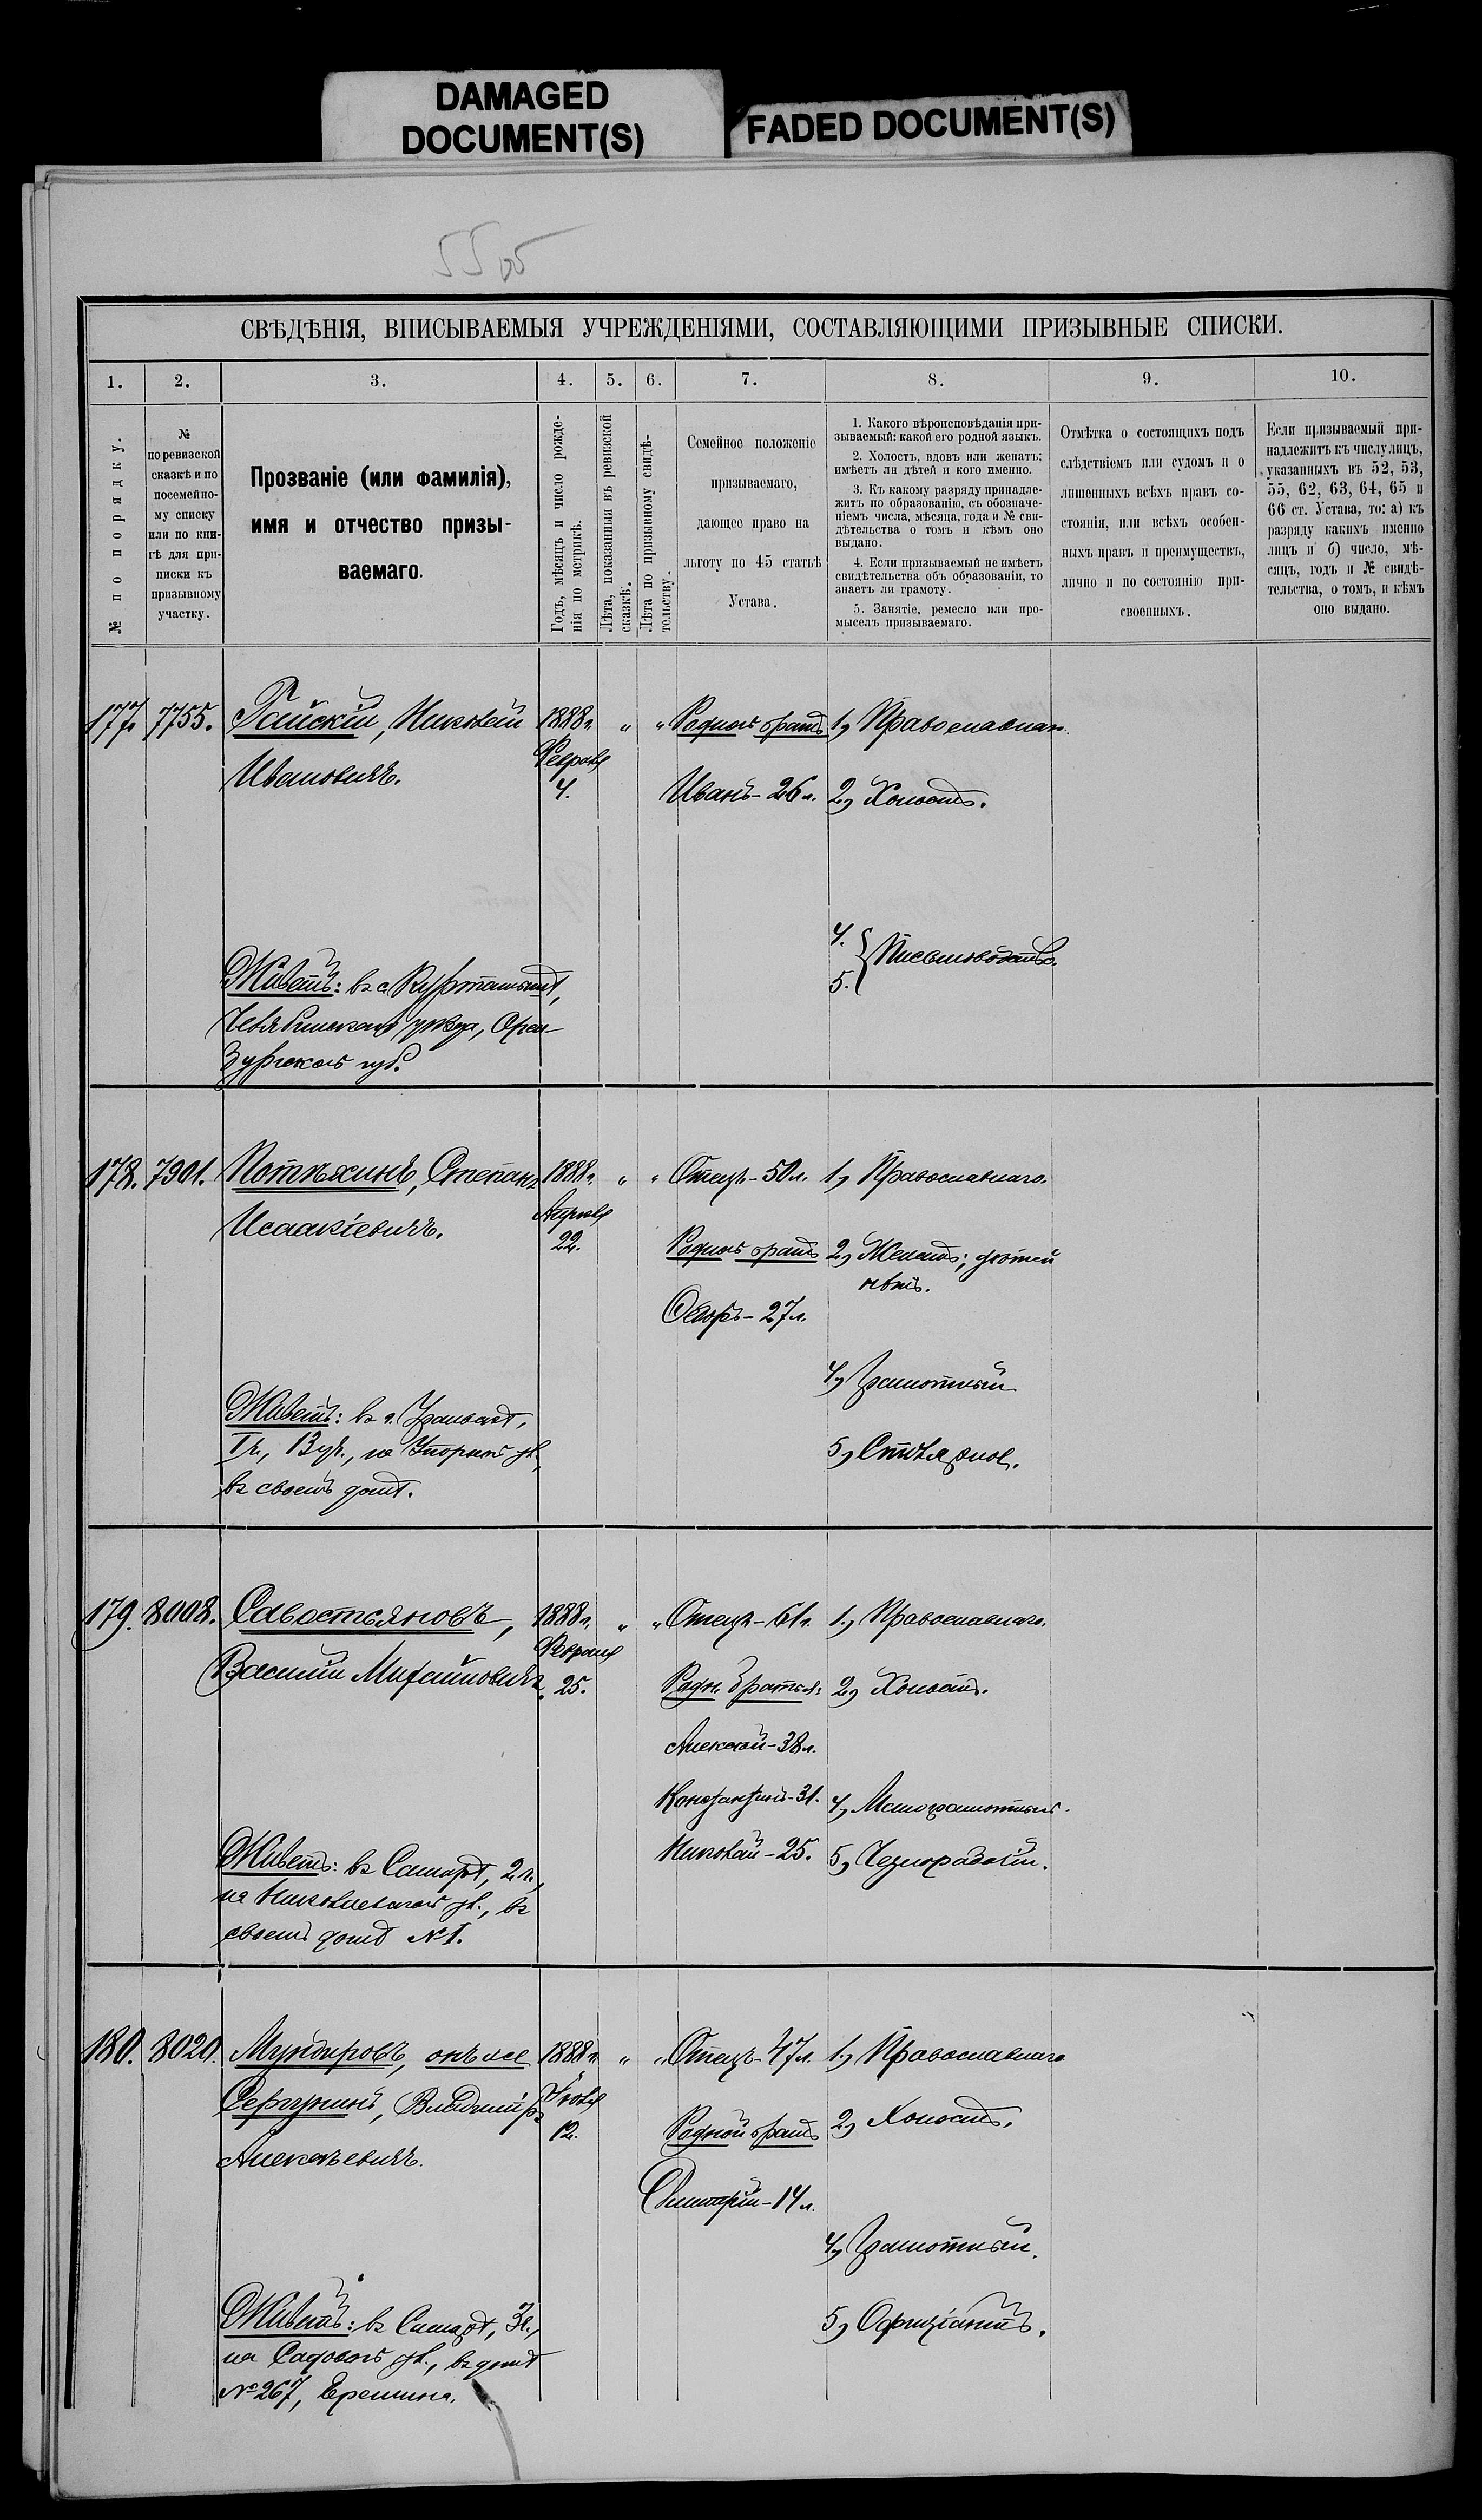 DAMAGED
DOCUMENT(S)
FADED DOCUMENT(S)
55 об
СВѢДѢНІЯ, ВПИСЫВАЕМЫЯ УЧРЕЖДЕНІЯМИ, СОСТАВЛЯЮЩИМИ ПРИЗЫВНЫЕ СПИСКИ.
1. 2. 3. 4. 5. 6. 7. 8. 9. 10.
№ по порядку.
№
по ревизской
сказкѣ и по
посемейно-
му списку
или по кни-
гѣ для при-
писки къ
призывному
участку.
Прозваніе (или фамилія),
имя и отчество призы-
ваемаго.
Годъ, мѣсяцъ и число рожде-
нія по метрикѣ.
Лѣта, показанныя въ ревизской
сказкѣ.
Лѣта по призывному свидѣ-
тельству.
Семейное положеніе
призываемаго,
дающее право на
льготу по 45 статьѣ
Устава.
1. Какого вѣроисповѣданія при-
зываемый: какой его родной языкъ.
2. Холостъ, вдовъ или женатъ;
имѣетъ ли дѣтей и кого именно.
3. Къ какому разряду принадле-
житъ по образованію, съ обозначе-
ніемъ числа, мѣсяца, года и № сви-
дѣтельства о томъ и кѣмъ оно
выдано.
4. Если призываемый не имѣетъ
свидѣтельства объ образованіи, то
знаетъ ли грамоту.
5. Занятіе, ремесло или про-
мыселъ призываемаго.
Отмѣтка о состоящихъ подъ
слѣдствіемъ или судомъ и о
лишенныхъ всѣхъ правъ со-
стоянія, или всѣхъ особен-
ныхъ правъ и преимуществъ,
лично и по состоянію при-
своенныхъ.
Если призываемый при-
надлежитъ къ числу лицъ,
указанныхъ въ 52, 53,
55, 62, 63, 64, 65 и
66 ст. Устава, то: а) къ
разряду какихъ именно
лицъ и б) число, мѣ-
сяцъ, годъ и № свидѣ-
тельства, о томъ, и кѣмъ
оно выдано.
177. 7755. Райскій, Николай 1888г. " " Родной братъ 1, Православнаго.
Февраля
Ивановичъ. 4. Иванъ - 26 л. 2, Холостъ.
4.
5. Письмоводство.
Живетъ: въ с. Куртамышѣ,
Челябинскаго уѣзда, Орен-
бургской губ.
178. 7901. Потѣхинъ, Степанъ 1888г. " " Отецъ - 50 л. 1, Православнаго.
Апрѣля
Исаакіевичъ. 22. Родной братъ 2, Женатъ; дѣтей
нѣтъ.
Ѳедоръ - 27 л.
4, Грамотный.
Живетъ: въ г. Уральскѣ,
въ своемъ домѣ.
5, Столяръ.
179. 8008. Савостьяновъ, 1888г. " " Отецъ - 61 л. 1, Православнаго.
Февраля
Василій Михайловичъ. 25. Родн. братья: 2, Холостъ.
Алексѣй - 38 л.
Константинъ - 31. 4, Малограмотный.
Николай - 25. 5, Чернорабочій.
Живетъ: въ Самарѣ, 2 ч.,
на Николаевской ул., въ
своемъ домѣ № 1.
180. 8020. Мундировъ, онъ же 1888г. " " Отецъ - 47 л. 1, Православнаго
Іюля
Сергунинъ, Владиміръ 12. Родной братъ 2, Холостъ.
Алексѣевичъ.
Димитрій - 14 л.
4, Грамотный.
5, Оффиціантъ.
Живетъ: въ Самарѣ, 3 ч.,
на Садовой ул., въ домѣ
№ 267, Еремина.